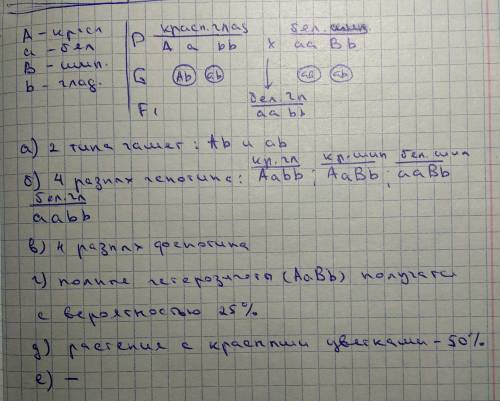 А - красн
а - бел
В - шип.
b - глад.
P красн. глад × бел. шип
A a bb aa Bb
G Ab ab aB ab
F1 бел. гл
aabb
а) 2 типа гамет: Ab и ab
б) 4 разных генотипа: кр. гл AaBb; кр. шип AaBB; бел. шип aaBb
бел. гл
aabb
в) 4 разных фенотипа
г) полные гетерозиготы (AaBb) получатся
с вероятностью 25%
д) растения с красными цветками - 50%
е) —